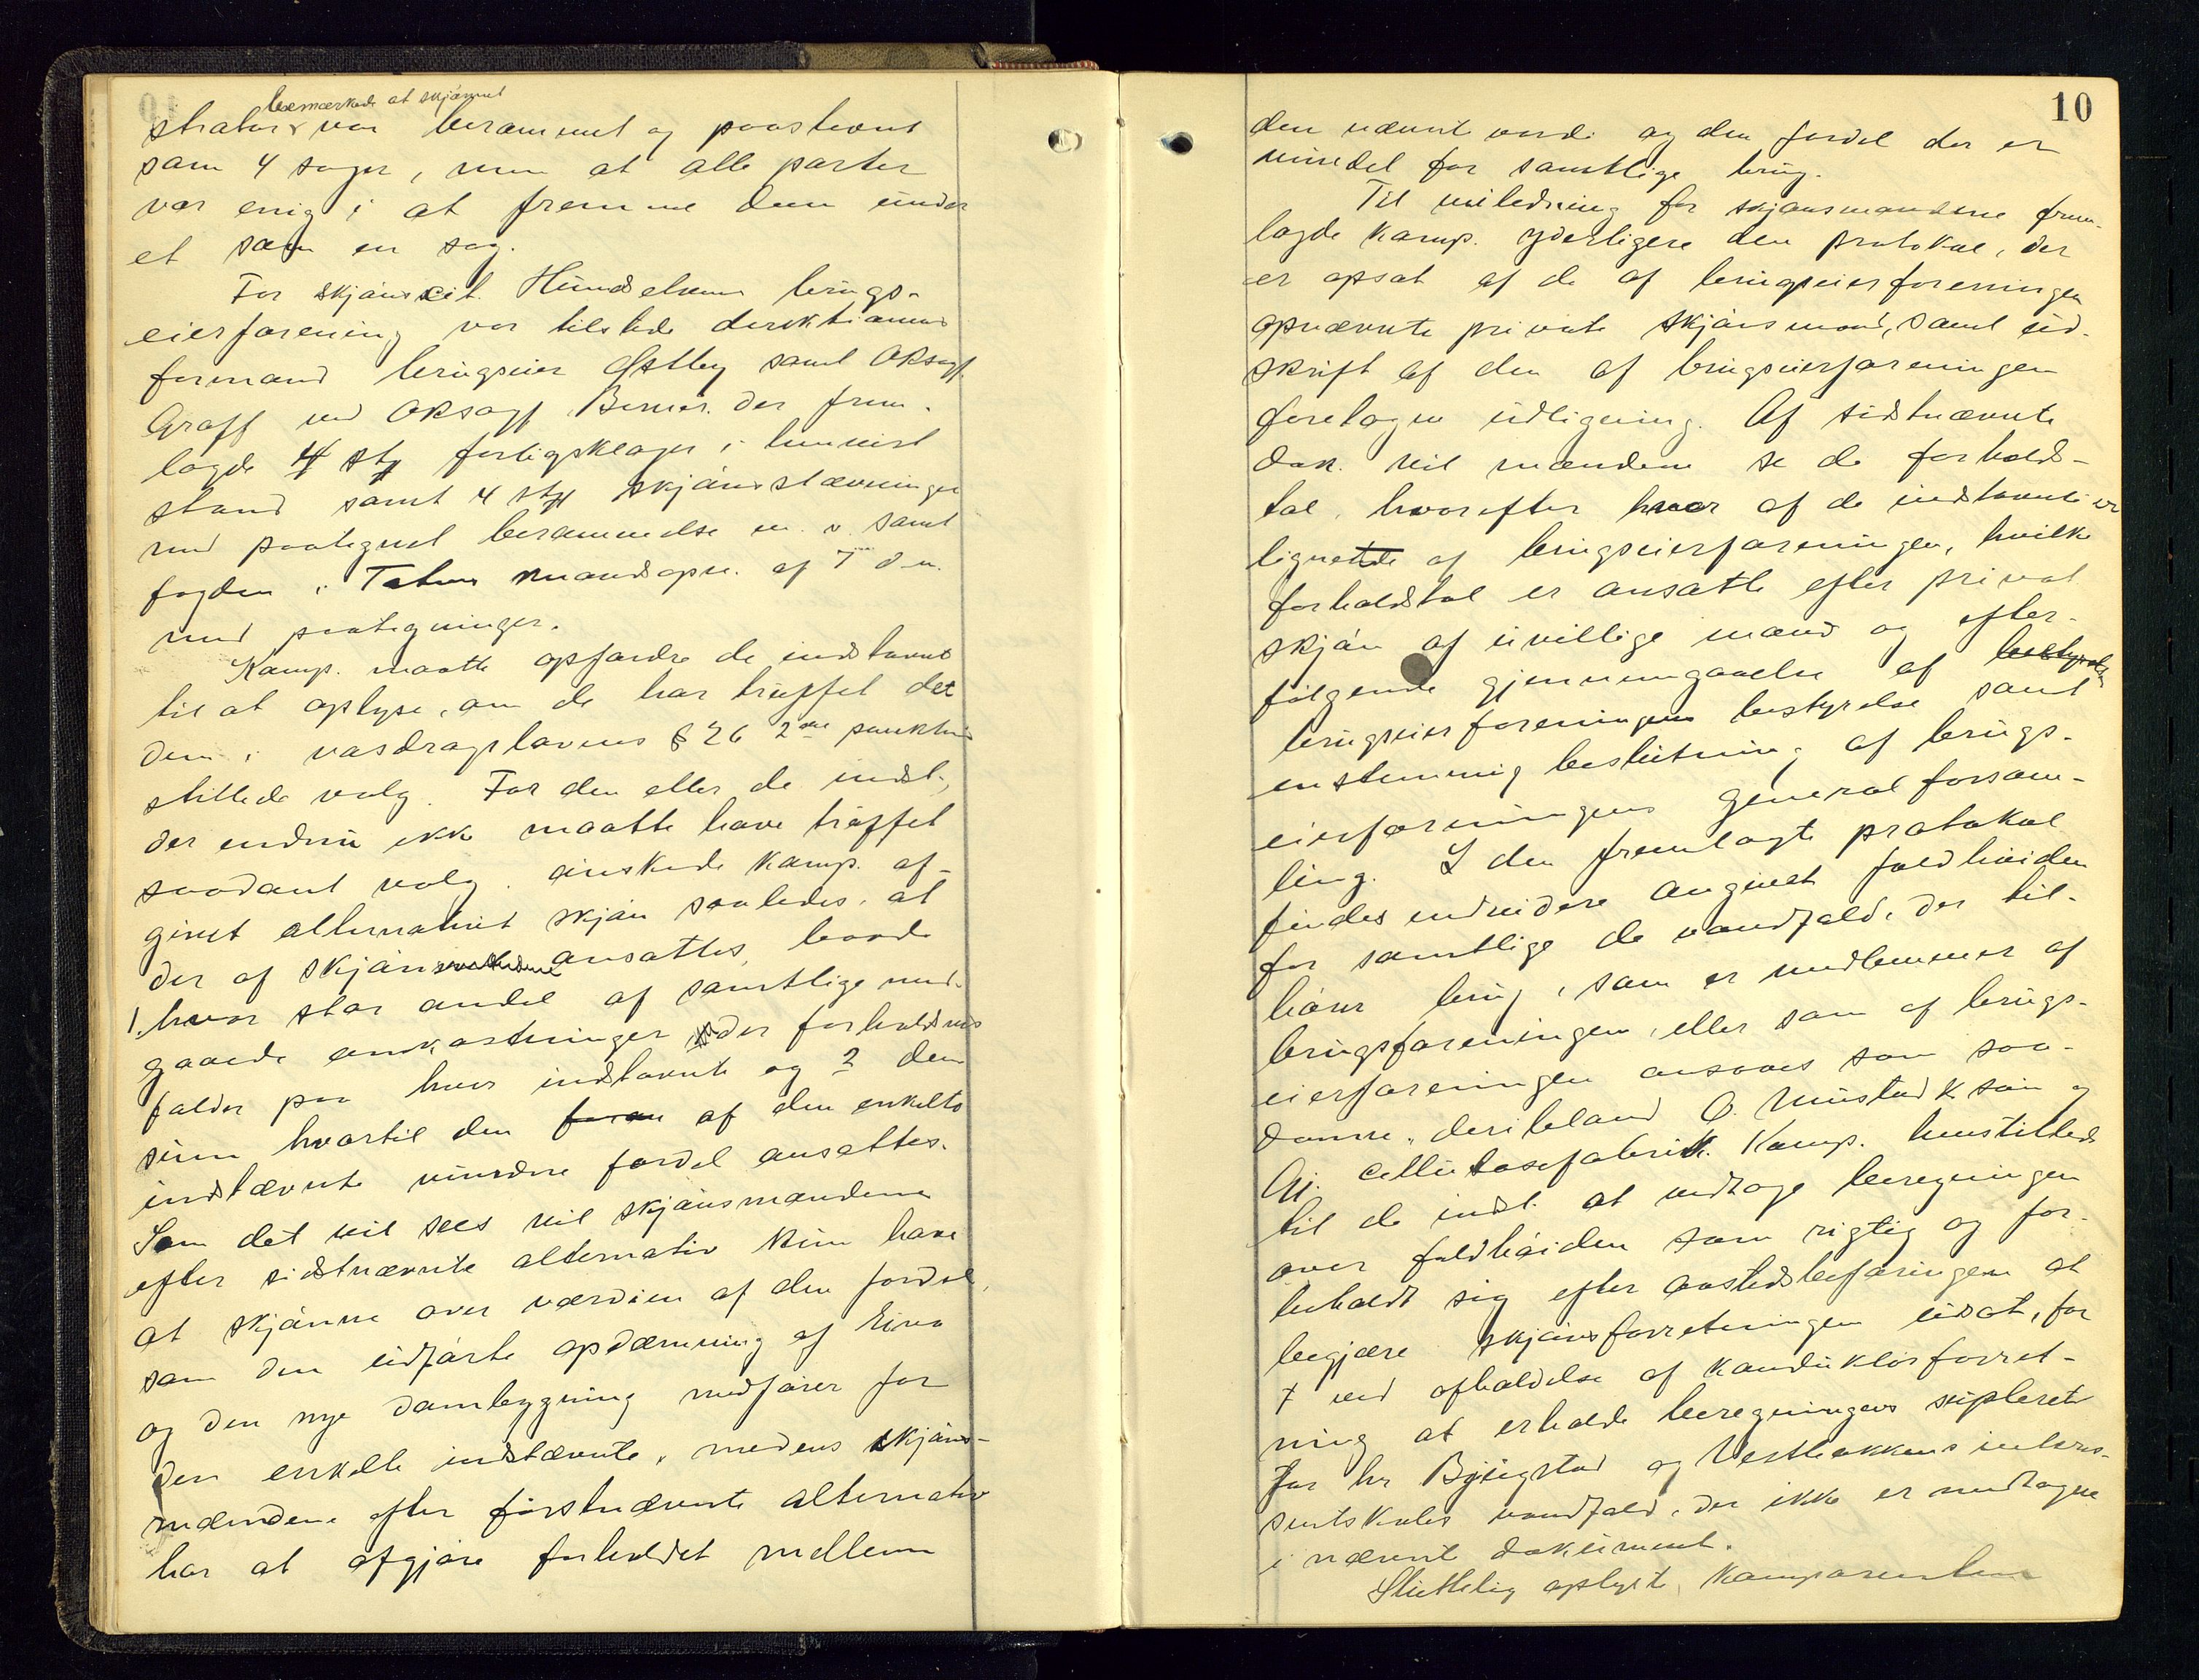 bemærkede at skjønnet
strator var berammet og paastevnt
som 4 sager, men at alle parter
var enig i at fremme dem under
et som en sag.
For skjønscit. Hundselvens brugs-
eierforening var tilstede direktionens
formand brugseier Østby samt OKsagf.
Graff ved OKsagf Berner. der frem-
lagde 4 stk forligsklager i henvist
stand samt 4 stk skjønsstævninger
med paategnet berammelse m. v. samt
fogden i Totens mandsopn. af 7 d. m.
med paategninger.
Komp. maatte opfordre de indstævnte
til at oplyse, om de har truffet det
dem i vasdragslovens § 26 2det punktum
stillede valg. For den eller de indst.,
der endnu ikke maatte have truffet
saadant valg. ønskede Komp. af-
givet alternativt skjøn saaledes, at
der af skjønsmændene ansattes, baade
1. hvor stor andel af samtlige med-
gaaede omkostninger der forholdsvis
falder paa hver indstævnte og 2 den
sum hvortil den af den enkelte
indstævnte vundne fordel ansættes.
Som det vil sees vil skjønsmændene
efter sidstnævnte alternativ kun have
at skjønne over værdien af den fordel,
som den udførte opdæmning af Eina
og den nye dambygning medfører for
den enkelte indstævnte, medens skjøns-
mændene efter førstnævnte alternativ
har at afgjøre forholdet mellem
10
den nævnte værdi og den fordel der er
vundet for samtlige brug.
Til veiledning for skjønsmændene frem-
lagde Komp. yderligere den protokol, der
er opsat af de af brugseierforeningen
opnævnte private skjønsmænd, samt ud-
skrift af den af brugseierforeningen
foretagne udligning. Af sidstnævnte
dok. vil mændene se de forholds-
tal, hvorefter hver af de indstævnte er
lignet af brugseierforeningen, hvilke
forholdstal er ansatte efter privat
skjøn af uvillige mænd og efter-
følgende gjennemgaaelse af
brugseierforeningens bestyrelse samt
enstemmig beslutning af brugs-
eierforeningens generalforsam-
ling. I den fremlagte protokol
findes endvidere angivet faldhøiden
for samtlige de vandfald, der til-
hører brug, som er medlemmer af
brugsforeningen, eller som af brugs-
eierforeningen ansees som saa-
danne, deribland O. Mustad & søn og
Gj. cellulosefabrik. Komp. henstillede
til de indst. at vedtage beregningen
over faldhøiden som rigtig og for-
beholdt sig efter aastedsbefaringen at
begjære skjønsforretningen udsat, for
ved afholdelse af konduktørforret-
ning at erholde beregningen supleret
for hr Bjugstad og Vestbakkens interes-
sentskabs vandfald, der ikke er medtagne
i nævnte dokument.
Sluttelig oplyste Komparenten